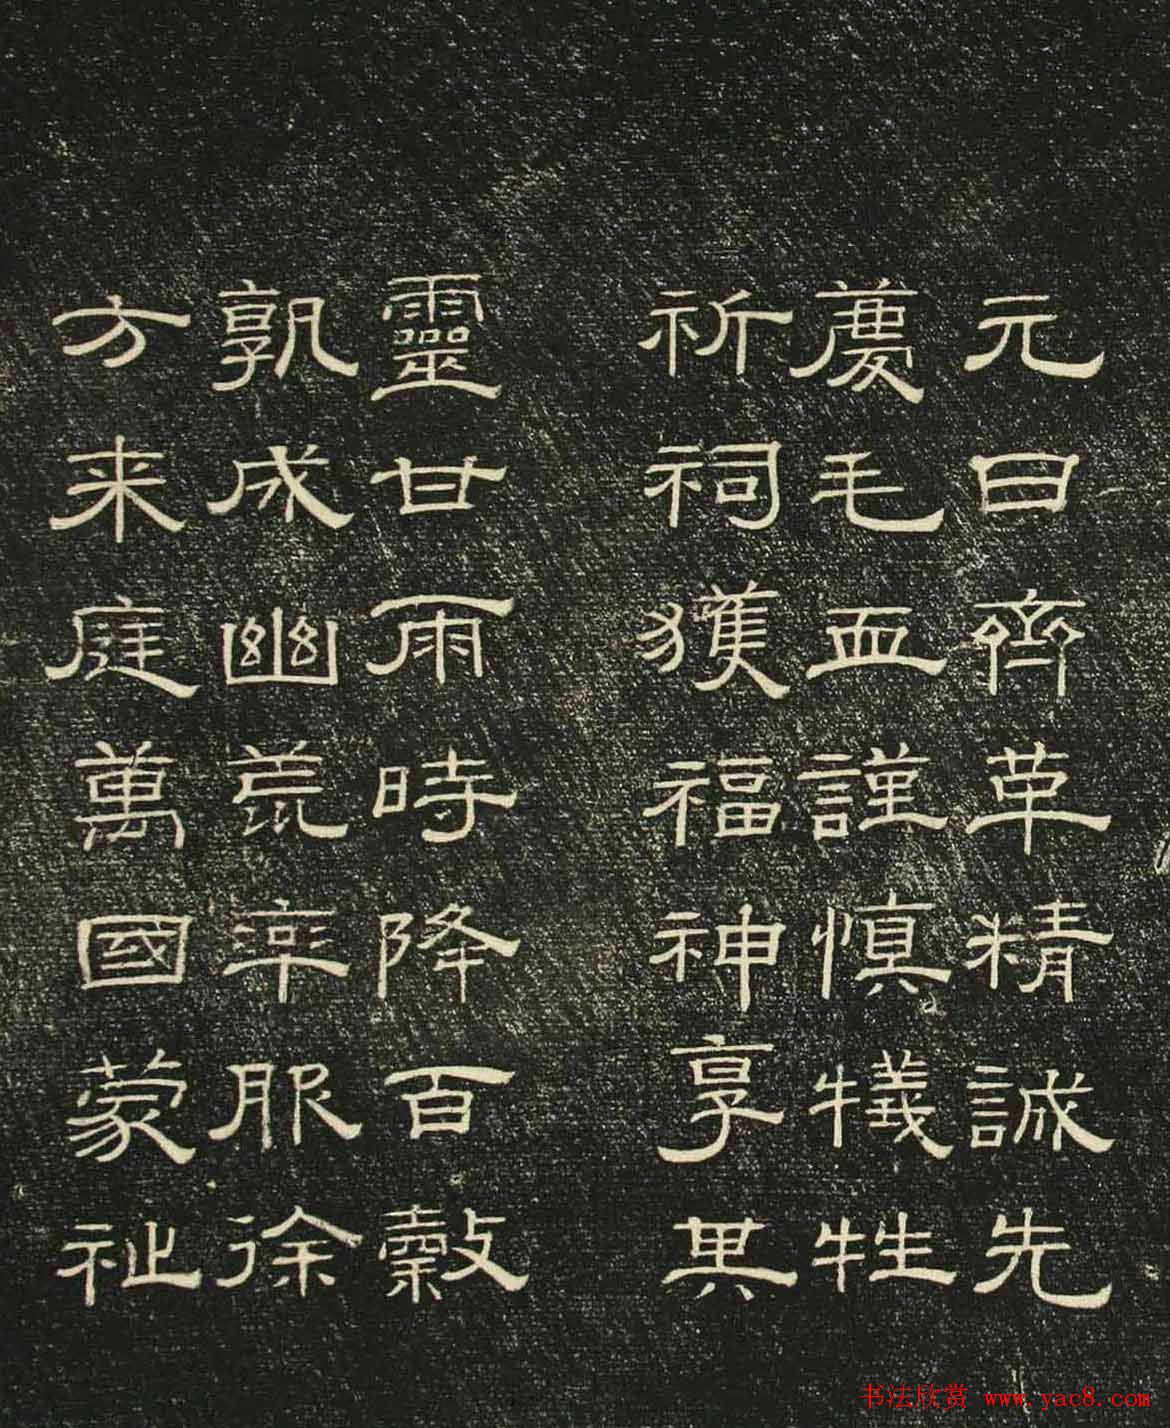 元日齊革精誠先
慶毛血謹慎犧牲
祈祠獲福神享其
靈甘雨時降百穀
孰成幽荒率服徐
方来庭萬國蒙祉
书法欣赏 www.yac8.com